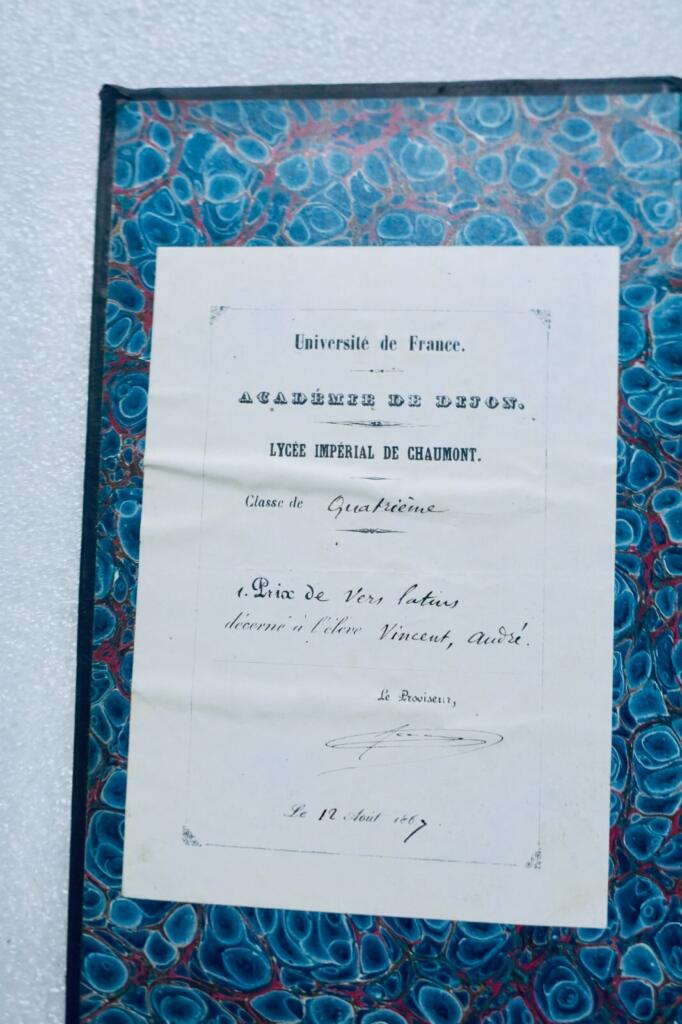 Université de France.
ACADÉMIE DE DIJON.
LYCÉE IMPÉRIAL DE CHAUMONT.
Classe de Quatrième
1. Prix de Vers latins
décerné à l'élève Vincent, André.
Le Proviseur,
Le 12 Août 1867